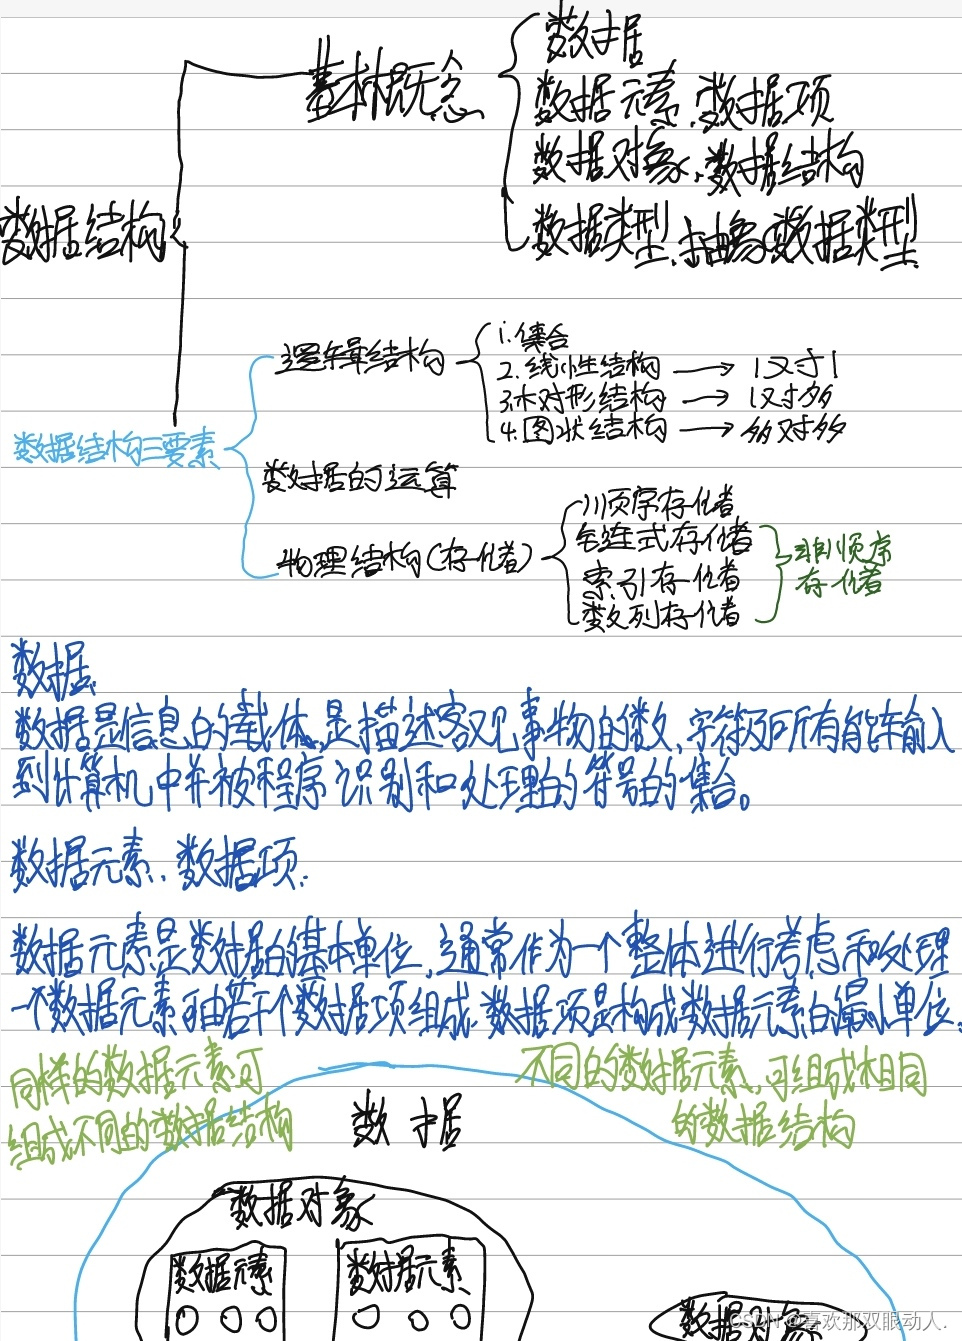 数据结构
基本概念
数据
数据元素、数据项
数据对象、数据结构
数据类型、抽象数据类型
数据结构三要素
逻辑结构
1.集合
2.线性结构 → 1对1
3.树形结构 → 1对多
4.图状结构 → 多对多
数据的运算
物理结构(存储)
顺序存储
链式存储
索引存储
散列存储
非顺序
存储
数据、
数据是信息的载体,是描述客观事物的数、字符及所有能输入
到计算机中并被程序识别和处理的符号的集合。
数据元素、数据项.
数据元素是数据的基本单位,通常作为一个整体进行考虑和处理
一个数据元素可由若干个数据项组成.数据项是构成数据元素的最小单位.
同样的数据元素可
组成不同的数据结构
不同的数据元素,可组成相同
的数据结构
数据
数据对象
数据元素
数据元素
数据对象
CSDN @喜欢那双眼动人.